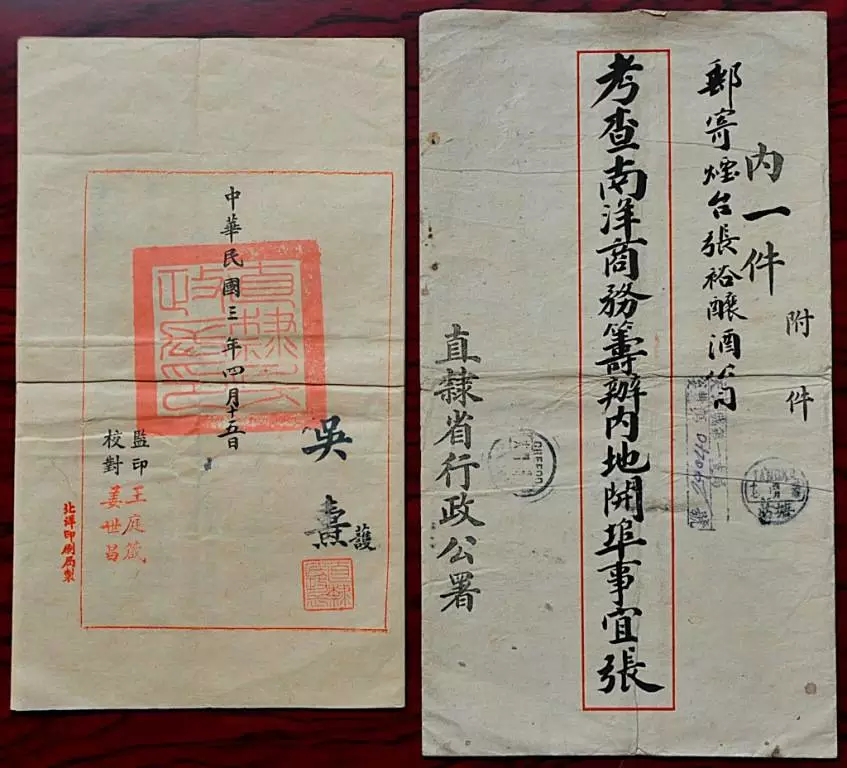 附件
內一件
郵寄煙台張裕釀酒公司
考查南洋商務籌辦內地開埠事宜張
直隸省行政公署
CHEFOO
中華民國三年四月十五日
吳燾護
監印王庭箴
校對姜世昌
北洋印刷局製